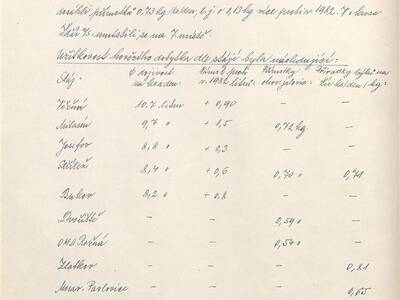 docíleti přírůstků 0,73 kg/ks/den, t.j. o 0,13 kg více proti r. 1982. V okrese
Žďár n/S. umístili se na 7. místě.
Užitkovost hovězího dobytka dle stájí byla následující:
Stáj: Ø dojivost rozdíl proti Přírůstky Přírůstky býků na
na ks a den: r. 1982 litrů: chov. jalovic: žír ks/den/kg:
Věžná 10.7 litrů + 0,90 — —
Milasín 9,7 " + 1,5 0,72 kg —
Josefov 8,8 " + 0,3 — —
8,4 " + 0,6 0,70 " 0,71
Bukov 8,2 " + 0,8 — —
Dvořiště — — 0,59 " —
OMD Rožná — — 0,54 " —
Zlatkov — — — 0,81
Morav. Pavlovice — — — 0,65